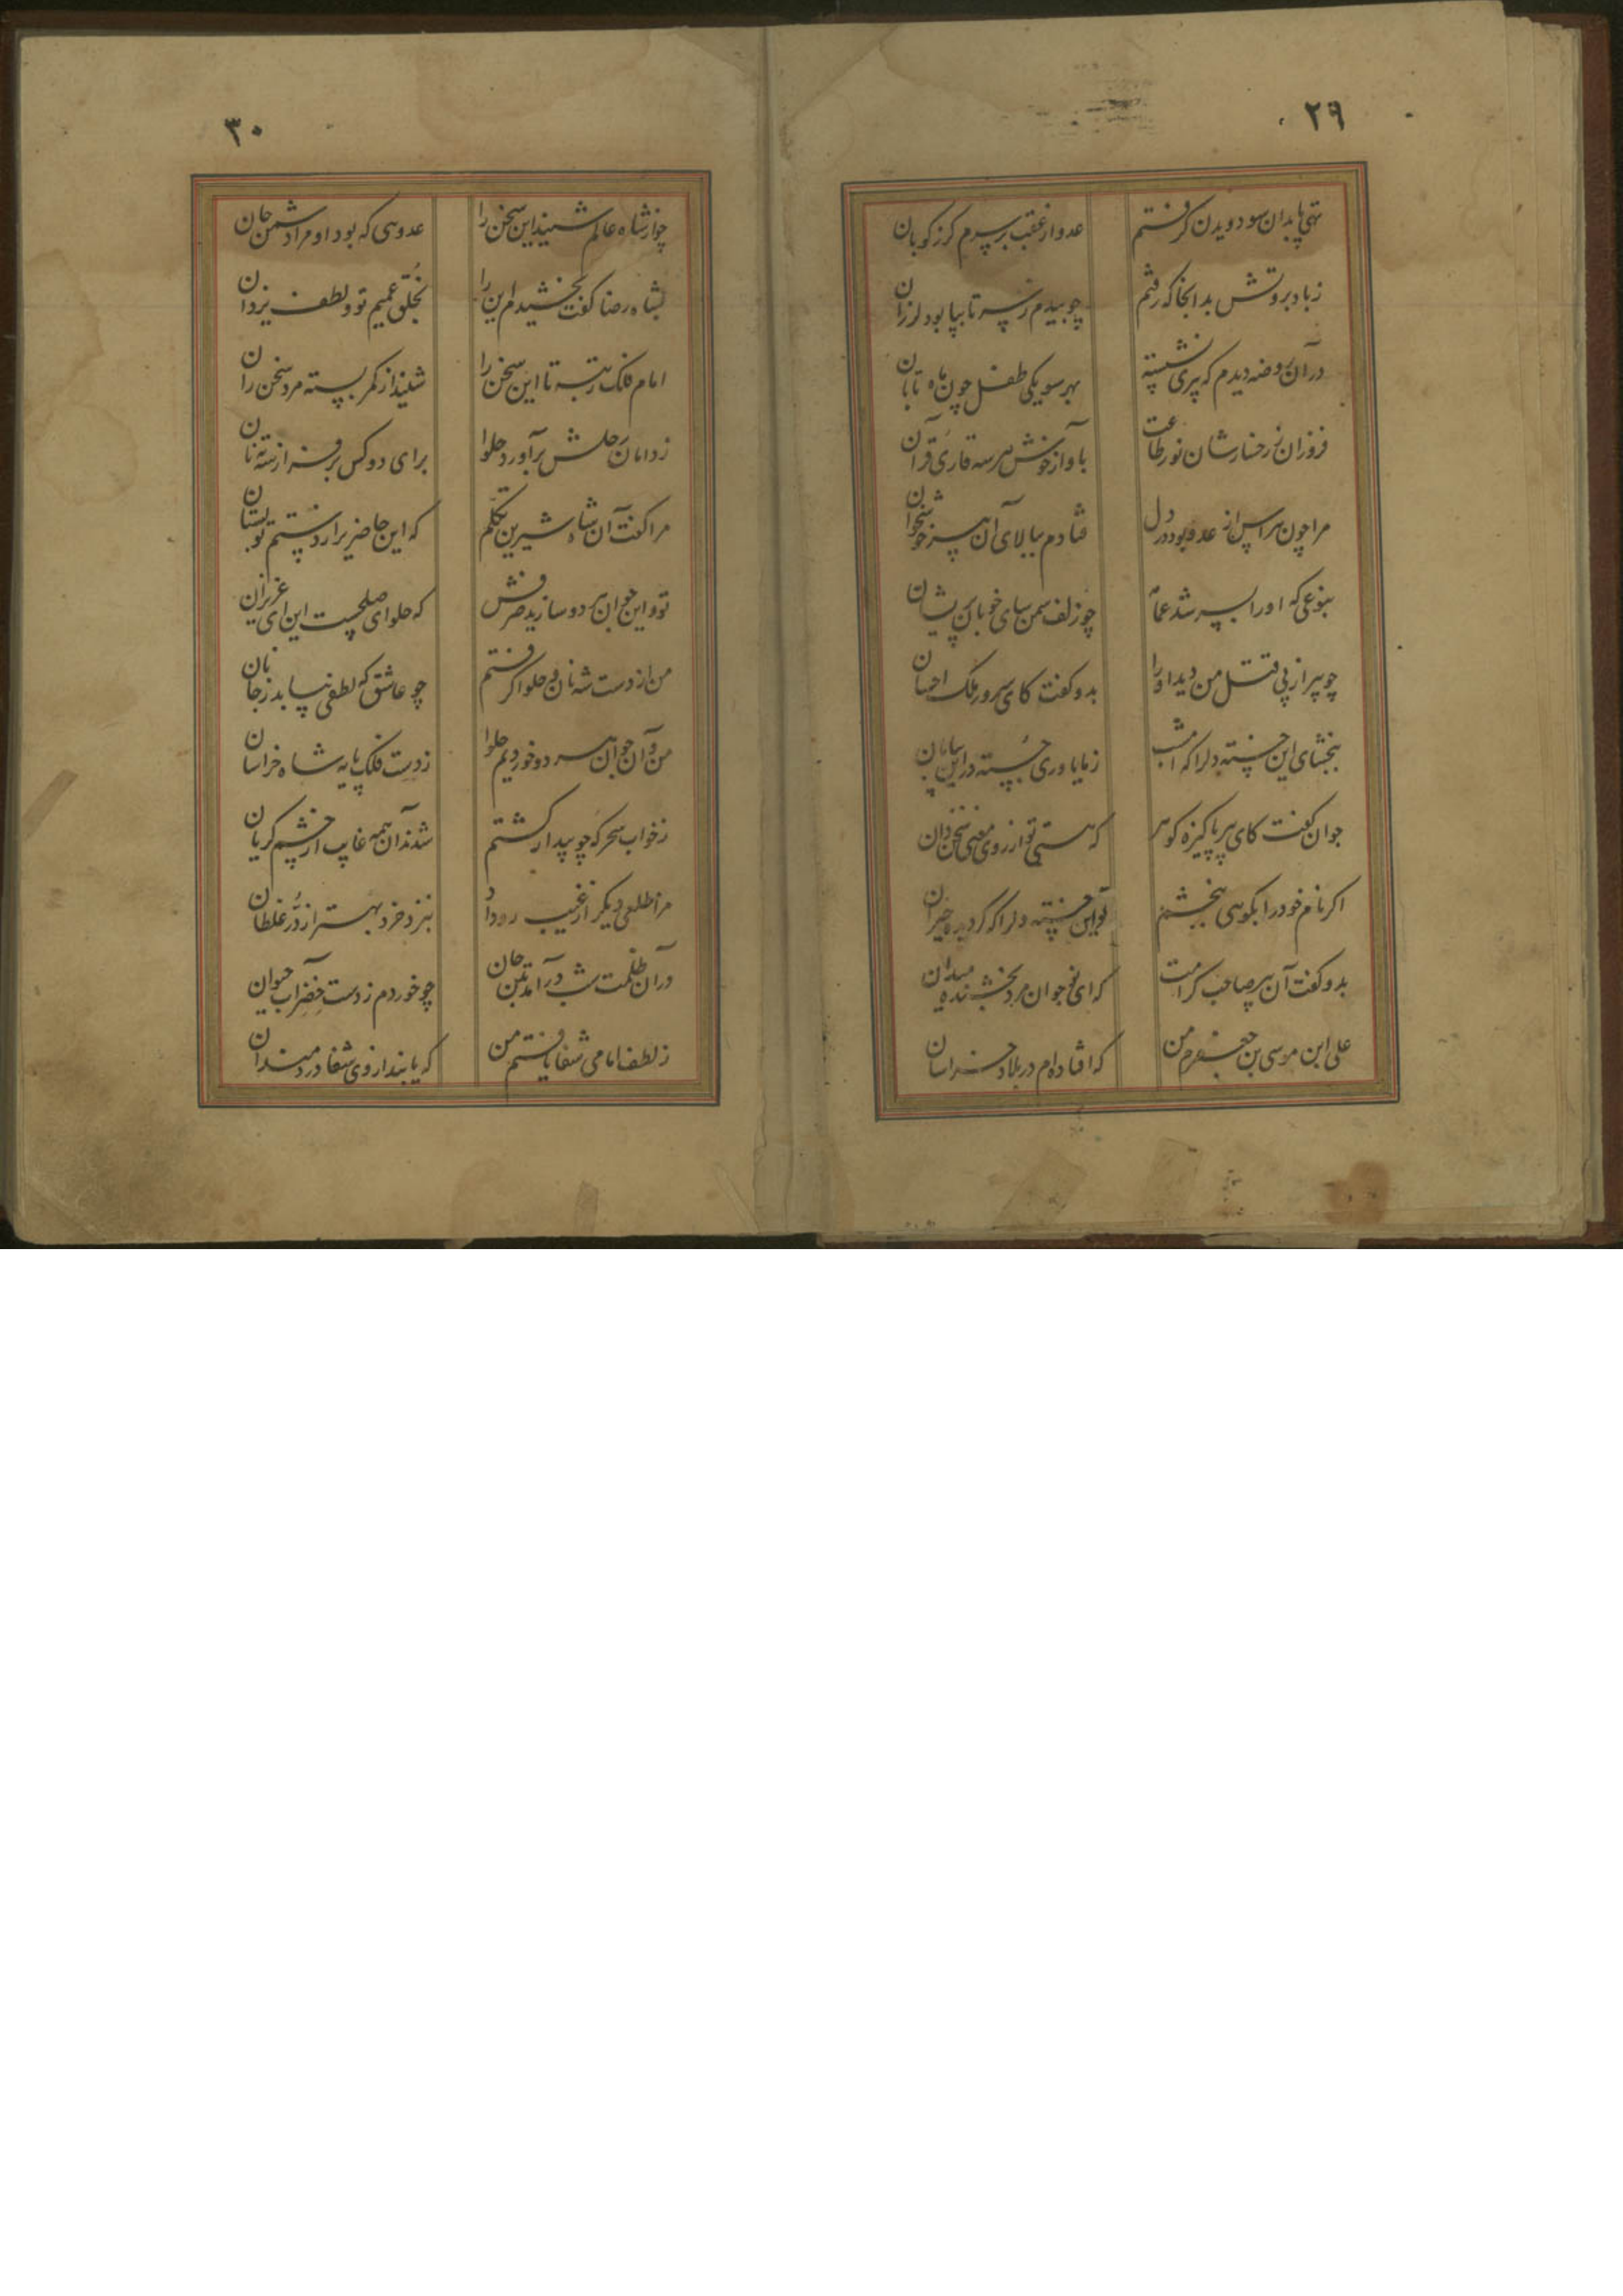 ۲۹
تهی پا بدان سو دویدن گرفتم عدو از عقب بر سرم گرز کوبان
ز باد بروتش بدانجا که رفتم چو بیدم ز سر تا بپا بود لرزان
در آن روضه دیدم که پیری نشسته بهر سو یکی طفل چون ماه تابان
فروزان ز رخسارشان نور طاعت بآواز خوش هر سه قاری قرآن
مرا چون هراس از عدو بود در دل فتادم ببالای آن
بنوعی که او را بسر شد چو زلف سمن سای خوبان پریشان
چو پیر از پی قتل من دید او را بدو گفت کای سرور ملک احسان
ببخشای این خسته دل را که امشب ز ما یاوری جسته در این بیابان
جوان گفت کای پیر پاکیزه گوهر که هستی تو از روی معنی سخن دان
اگر نام خود را بگویی ببخشم تو این خسته دل را که گردیده حیران
بدو گفت آن پیر صاحب کرامت که ای نوجوان مرد بخشنده میدان
علی ابن موسی بن جعفرم من که افتاده‌ام در بلاد خراسان
۳۰
چو از شاه عالم شنید این سخن را عدویی که بود او مرا دشمن جان
بشاه رضا گفت بخشیدم این را بخلق عمیم تو و لطف یزدان
امام فلک رتبه تا این سخن را شنید از کمر بسته مرد سخن ران
ز دامان حلش برآورد حلوا برای دو کس بر فراز سه نان
مرا گفت آن شاه شیرین تکلم که این حاضری را ز دستم تو بستان
تو و این جوان هر دو سازید صرفش که حلوای صلحست این ای عزیزان
من از دست شه نان و حلوا گرفتم چو عاشق که لطفی بیابد ز جانان
من و آن جوان هر دو خوردیم حلوا ز دست فلک پایه شاه خراسان
ز خواب سحرگه چو بیدار گشتم شدند آن همه غایب از چشم گریان
مرا مطلعی دیگر از غیب رو داد بنزد خرد بهتر از در غلطان
در آن ظلمت شب درآمد بتن جان چو خوردم ز دست خضر آب حیوان
ز لطف امامی شفا یافتم من که یابند از وی شفا دردمندان